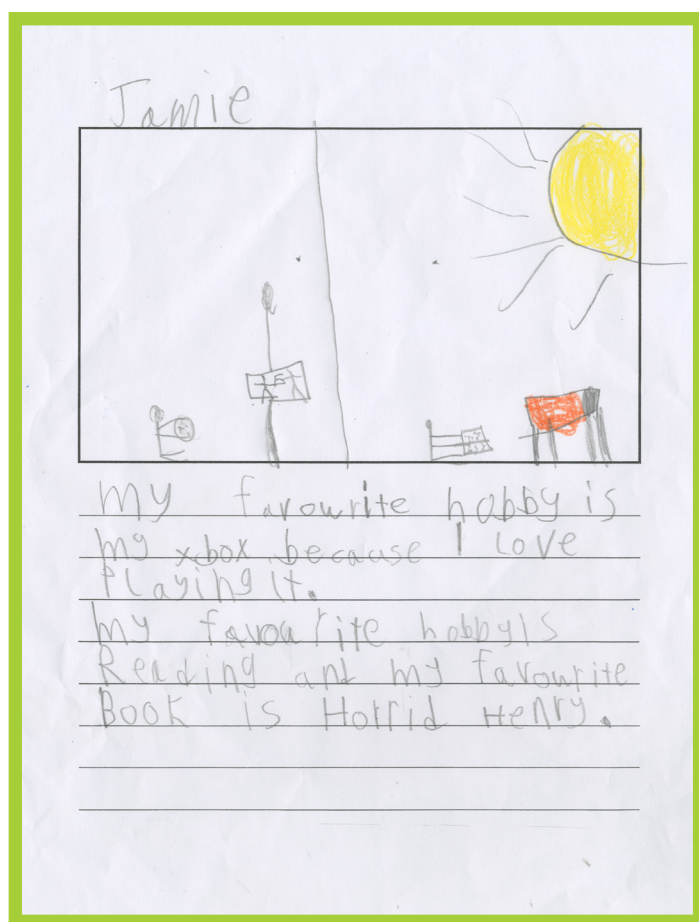 Jamie
my favourite hobby is
my xbox because I Love
Playing it.
my favourite hobby is
Reading ant my favourite
Book is Horrid Henry.